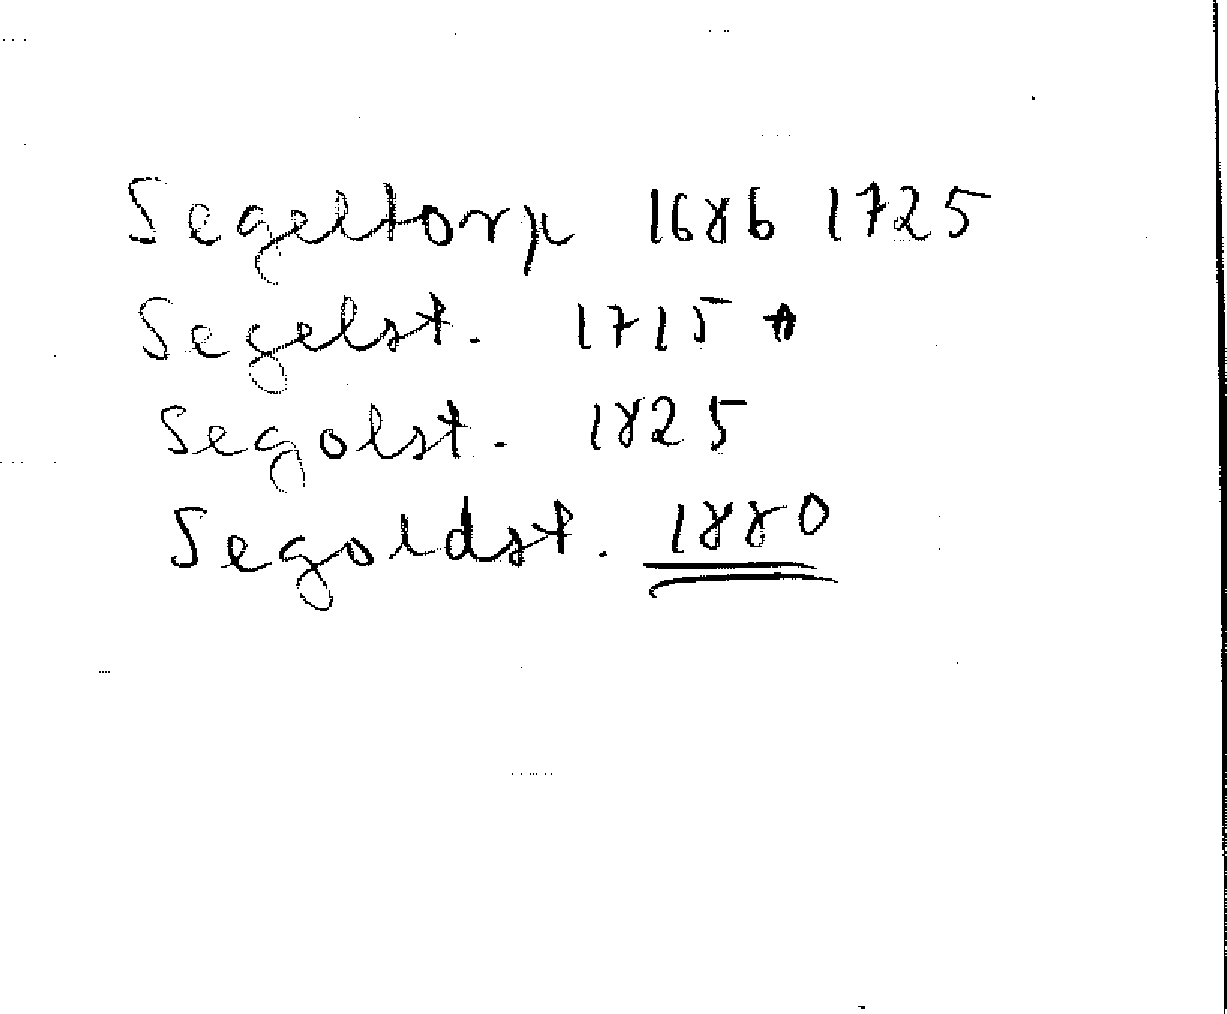 Segeltorp 1686 1725
Segelst. 1715
Segolst. 1825
Segoldst. 1880